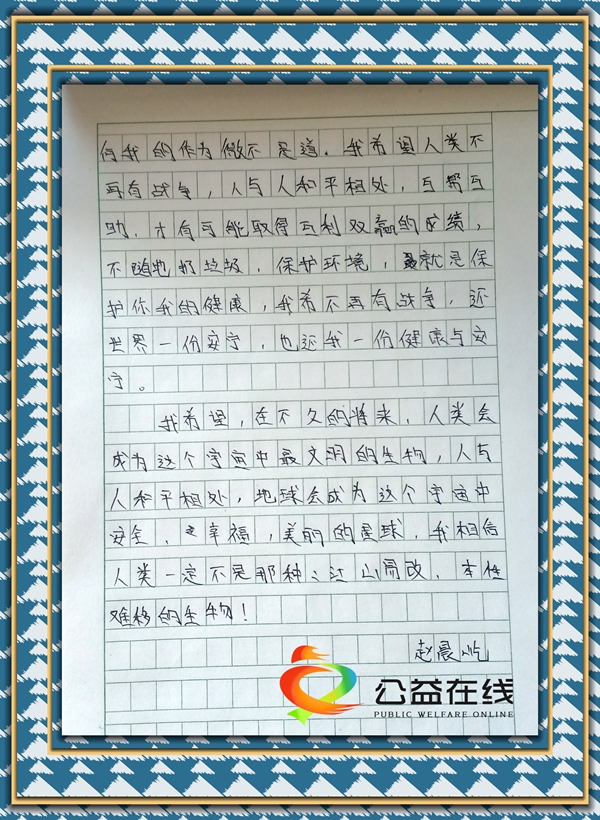 何我的作为微不足道。我希望人类不
再有战争，人与人和平相处，互帮互
助，才有可能取得互利双赢的成绩，
不随地扔垃圾，保护环境，就是保
护你我的健康，我希不再有战争，还
世界一份安宁，也还我一份健康与安
宁。
我希望，在不久的将来，人类会
成为这个宇宙中最文明的生物，人与
人和平相处，地球会成为这个宇宙中
安全、幸福，美丽的星球，我相信
人类一定不是那种：江山易改，本性
难移的生物！
赵晨屹
公益在线
PUBLIC WELFARE ONLINE